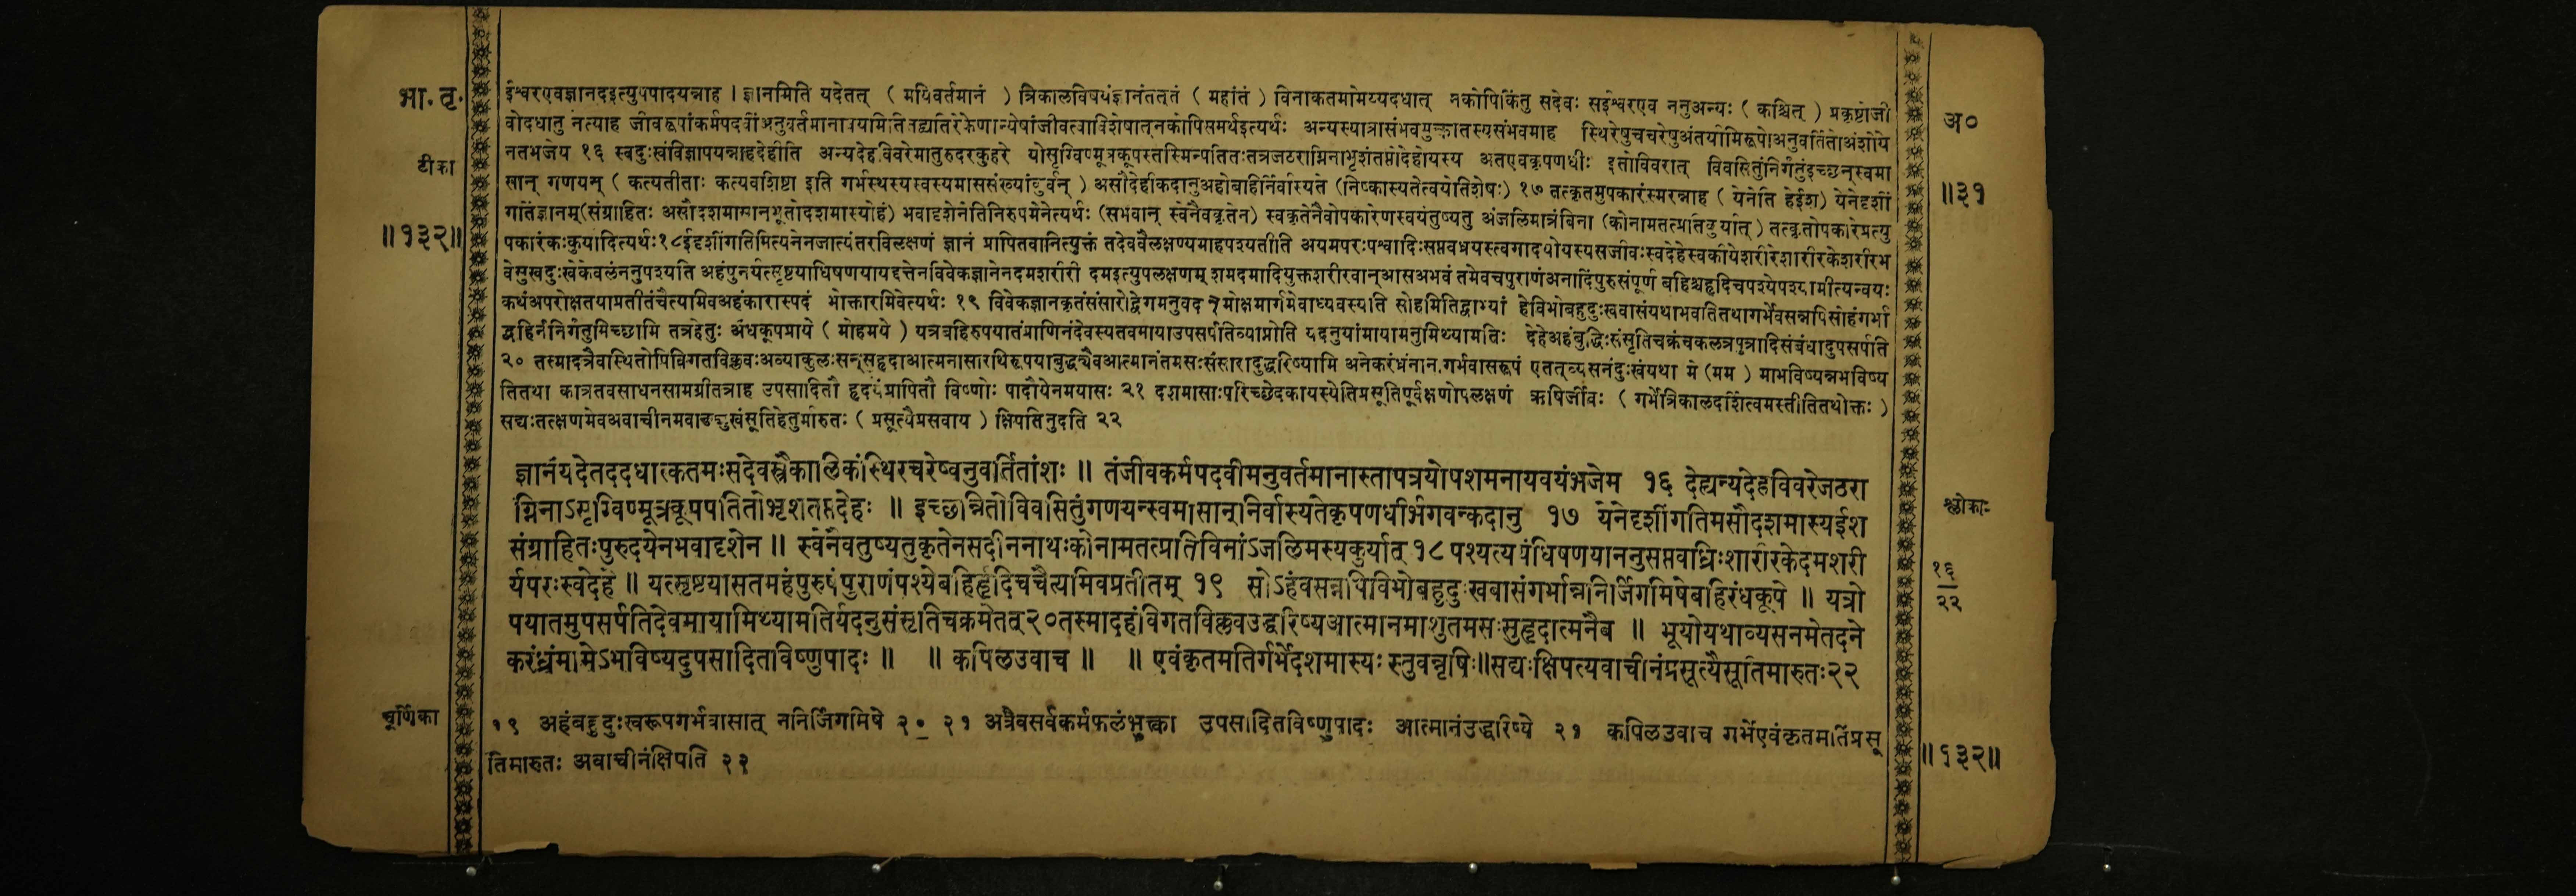 भा. तृ.
टीका
॥१३२॥
ईश्वरएवज्ञानदइत्युपपादयन्नाह । ज्ञानमिति यदेतत् ( मयिवर्तमानं ) त्रिकालविषयंज्ञानंतत्तं ( महांतं ) विनाकतमोमेय्यदधात् नकोपिकिंतु सदेवः सईश्वरएव ननुअन्यः ( कश्चित् ) प्रकृष्टोजी
वोदधातु नत्याह जीवरूपांकर्मपदवींअनुवर्तमानावयमिति तद्व्यतिरेकेणान्येषांजीवत्वाविशेषात्नकोपिसमर्थइत्यर्थः अन्यस्यात्रासंभवमुक्त्वातस्यसंभवमाह स्थिरेषुचचरेषुअंतर्यामिरूपोअनुवर्तितोअंशोये
नतंभजेय १६ स्वदुःखंविज्ञापयन्नाहदेहीति अन्यदेहविवरेमातुरुदरकुहरे योसृग्विण्मूत्रकूपस्तस्मिन्पतितःतत्रजठराग्निनाभृशंतप्तोदेहोयस्य अतएवकृपणधीः इतोविवरात् विवसितुंनिर्गंतुंइच्छन्स्वमा
सान् गणयन् ( कत्यतीताः कत्यवशिष्टा इति गर्भस्थस्यस्वस्यमाससंख्यांकुर्वन् ) असौदेहीकदानुअहोबहिर्निर्वास्यते (निष्कास्यतेत्वयेतिशेषः) १७ तत्कृतमुपकारंस्मरन्नाह ( येनेति हेईश) येनेदृशीं
गतिंज्ञानम्(संग्राहितः असौदशमासानभूतोदशमास्योहं) भवादृशेनेतिनिरुपमेनेत्यर्थः (सभवान् स्वेनैवकृतेन) स्वकृतेनैवोपकारेणस्वयंतुष्यतु अंजलिमात्रंविना (कोनामतत्प्रतिकुर्यात्) तत्कृतोपकारेप्रत्यु
पकारंकःकुर्यादित्यर्थः१८ईदृशींगतिमित्यनेनजात्यंतरविलक्षणं ज्ञानं प्रापितवानित्युक्तं तदेववैलक्षण्यमाहपश्यतीति अयमपरःपश्वादिःसप्तवध्रयस्त्वगादयोयस्यसजीवःस्वदेहेस्वकीयेशरीरेशारीरकेशरीरभ
वेसुखदुःखेकेवलंननुपश्यति अहंपुनर्यत्सृष्टयाधिषणयायद्दत्तेनविवेकज्ञानेनदमशरीरी दमइत्युपलक्षणम् शमदमादियुक्तशरीरवान्आसअभवं तमेवचपुराणंअनादिंपुरुसंपूर्णं बहिश्चहृदिचपश्येपश्यामीत्यन्वयः
कथंअपरोक्षतयाप्रतीतंचैत्यमिवअहंकारास्पदं भोक्तारमिवेत्यर्थः १९ विवेकज्ञानकृतंसंसारोद्वेगमनुवदन्मोक्षमार्गमेवाध्यवस्यति सोहमितिद्वाभ्यां हेविभोबहुदुःखवासंयथाभवतितथागर्भेवसन्नपिसोहंगर्भा
द्बहिर्ननिर्गंतुमिच्छामि तत्रहेतुः अंधकूपप्राये ( मोहमये ) यत्रबहिरुपयातंप्राणिनंदेवस्यतवमायाउपसर्पतिव्याप्नोति यदनुयांमायामनुमिथ्यामतिः देहेअहंबुद्धिःसंसृतिचक्रंचकलत्रपुत्रादिसंबंधादुपसर्पति
२० तस्मादत्रैवस्थितोपिविगतविक्लवःअव्याकुलःसन्सुहृदाआत्मनासारथिरूपयाबुद्ध्यैवआत्मानंतमसःसंसारादुद्धरिष्यामि अनेकरंध्रंनानागर्भवासरूपं एतत्व्यसनंदुःखंयथा मे (मम ) माभविष्यन्नभविष्य
तितथा कात्रतवसाधनसामग्रीतत्राह उपसादितौ हृदयंप्रापितौ विष्णोः पादौयेनमयासः २१ दशमासाःपरिच्छेदकायस्येतिप्रसूतिपूर्वक्षणोपलक्षणं ऋषिर्जीवः ( गर्भेत्रिकालदर्शित्वमस्तीतितथोक्तः )
सद्यःतत्क्षणमेवअवाचीनमवाङ्मुखंसूतिहेतुर्मारुतः ( प्रसूत्यैप्रसवाय ) क्षिपतिनुदति २२
ज्ञानंयदेतददधात्कतमःसदेवस्त्रैकालिकंस्थिरचरेष्वनुवर्तितांशः ॥ तंजीवकर्मपदवीमनुवर्तमानास्तापत्रयोपशमनायवयंभजेम १६ देह्यन्यदेहविवरेजठरा
ग्निनाऽसृग्विण्मूत्रकूपपतितोभृशतप्तदेहः ॥ इच्छन्नितोविवसितुंगणयन्स्वमासान्निर्वास्यतेकृपणधीर्भगवन्कदानु १७ येनेदृशींगतिमसौदशमास्यईश
संग्राहितःपुरुदयेनभवादृशेन ॥ स्वेनैवतुष्यतुकृतेनसदीननाथःकोनामतत्प्रतिविनांऽजलिमस्यकुर्यात् १८ पश्यत्ययंधिषणयाननुसप्तवध्रिःशारीरकेदमशरी
र्यपरःस्वदेहे ॥ यत्सृष्टयासतमहंपुरुषंपुराणंपश्येबहिर्हृदिचचैत्यमिवप्रतीतम् १९ सोऽहंवसन्नपिविभोबहुदुःखवासंगर्भान्ननिर्जिगमिषेबहिरंधकूपे ॥ यत्रो
पयातमुपसर्पतिदेवमायामिथ्यामतिर्यदनुसंसृतिचक्रमेतत्२०तस्मादहंविगतविक्लवउद्धरिष्यआत्मानमाशुतमसःसुहृदात्मनैव ॥ भूयोयथाव्यसनमेतदने
करंध्रंमामेऽभविष्यदुपसादितविष्णुपादः ॥ ॥ कपिलउवाच ॥ ॥ एवंकृतमतिर्गर्भेदशमास्यः स्तुवन्नृषिः॥सद्यःक्षिपत्यवाचीनंप्रसूत्यैसूतिमारुतः२२
चूर्णिका
१९ अहंबहुदुःखरूपगर्भवासात् ननिर्जिगमिषे २० २१ अत्रैवसर्वकर्मफलंभुक्त्वा उपसादितविष्णुपादः आत्मानंउद्धरिष्ये २१ कपिलउवाच गर्भेएवंकृतमतिंप्रसू
तिमारुतः अवाचीनंक्षिपति २२
अ०
॥३१
श्लोकाः
१६
२२
॥१३२॥